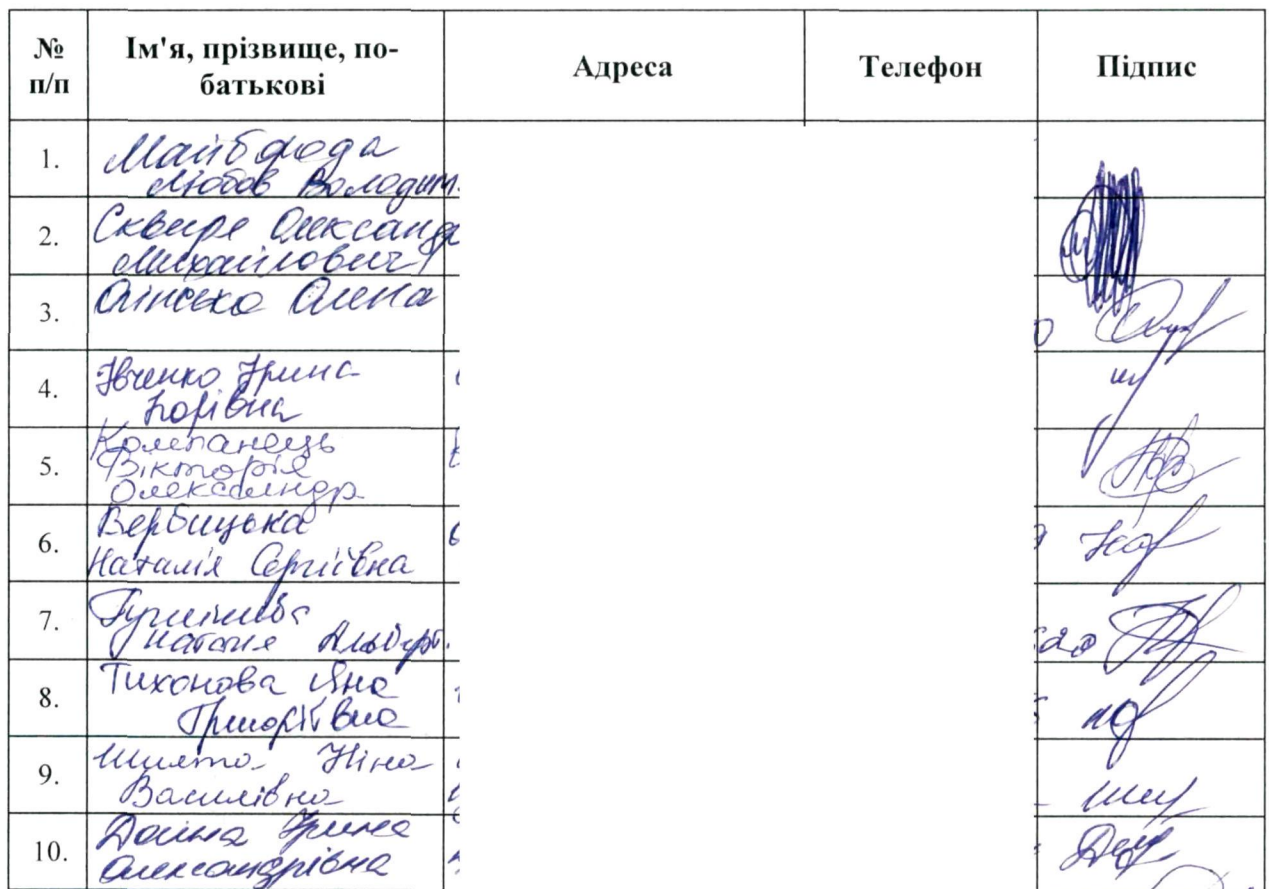 № п/п
Ім'я, прізвище, по-батькові
Адреса
Телефон
Підпис
1.
Майборода
Любов Володим.
2.
Сквире Олександр
Михайлович
3.
Олена
4.
Івченко Ірина
Юріївна
5.
Компанець
Вікторія
Олександр
6.
Вербицька
Наталія Сергіївна
7.
Наталія Альберт.
8.
Тихонова Яна
Григоріївна
9.
Ніна
Василівна
10.
Ірина
Олександрівна